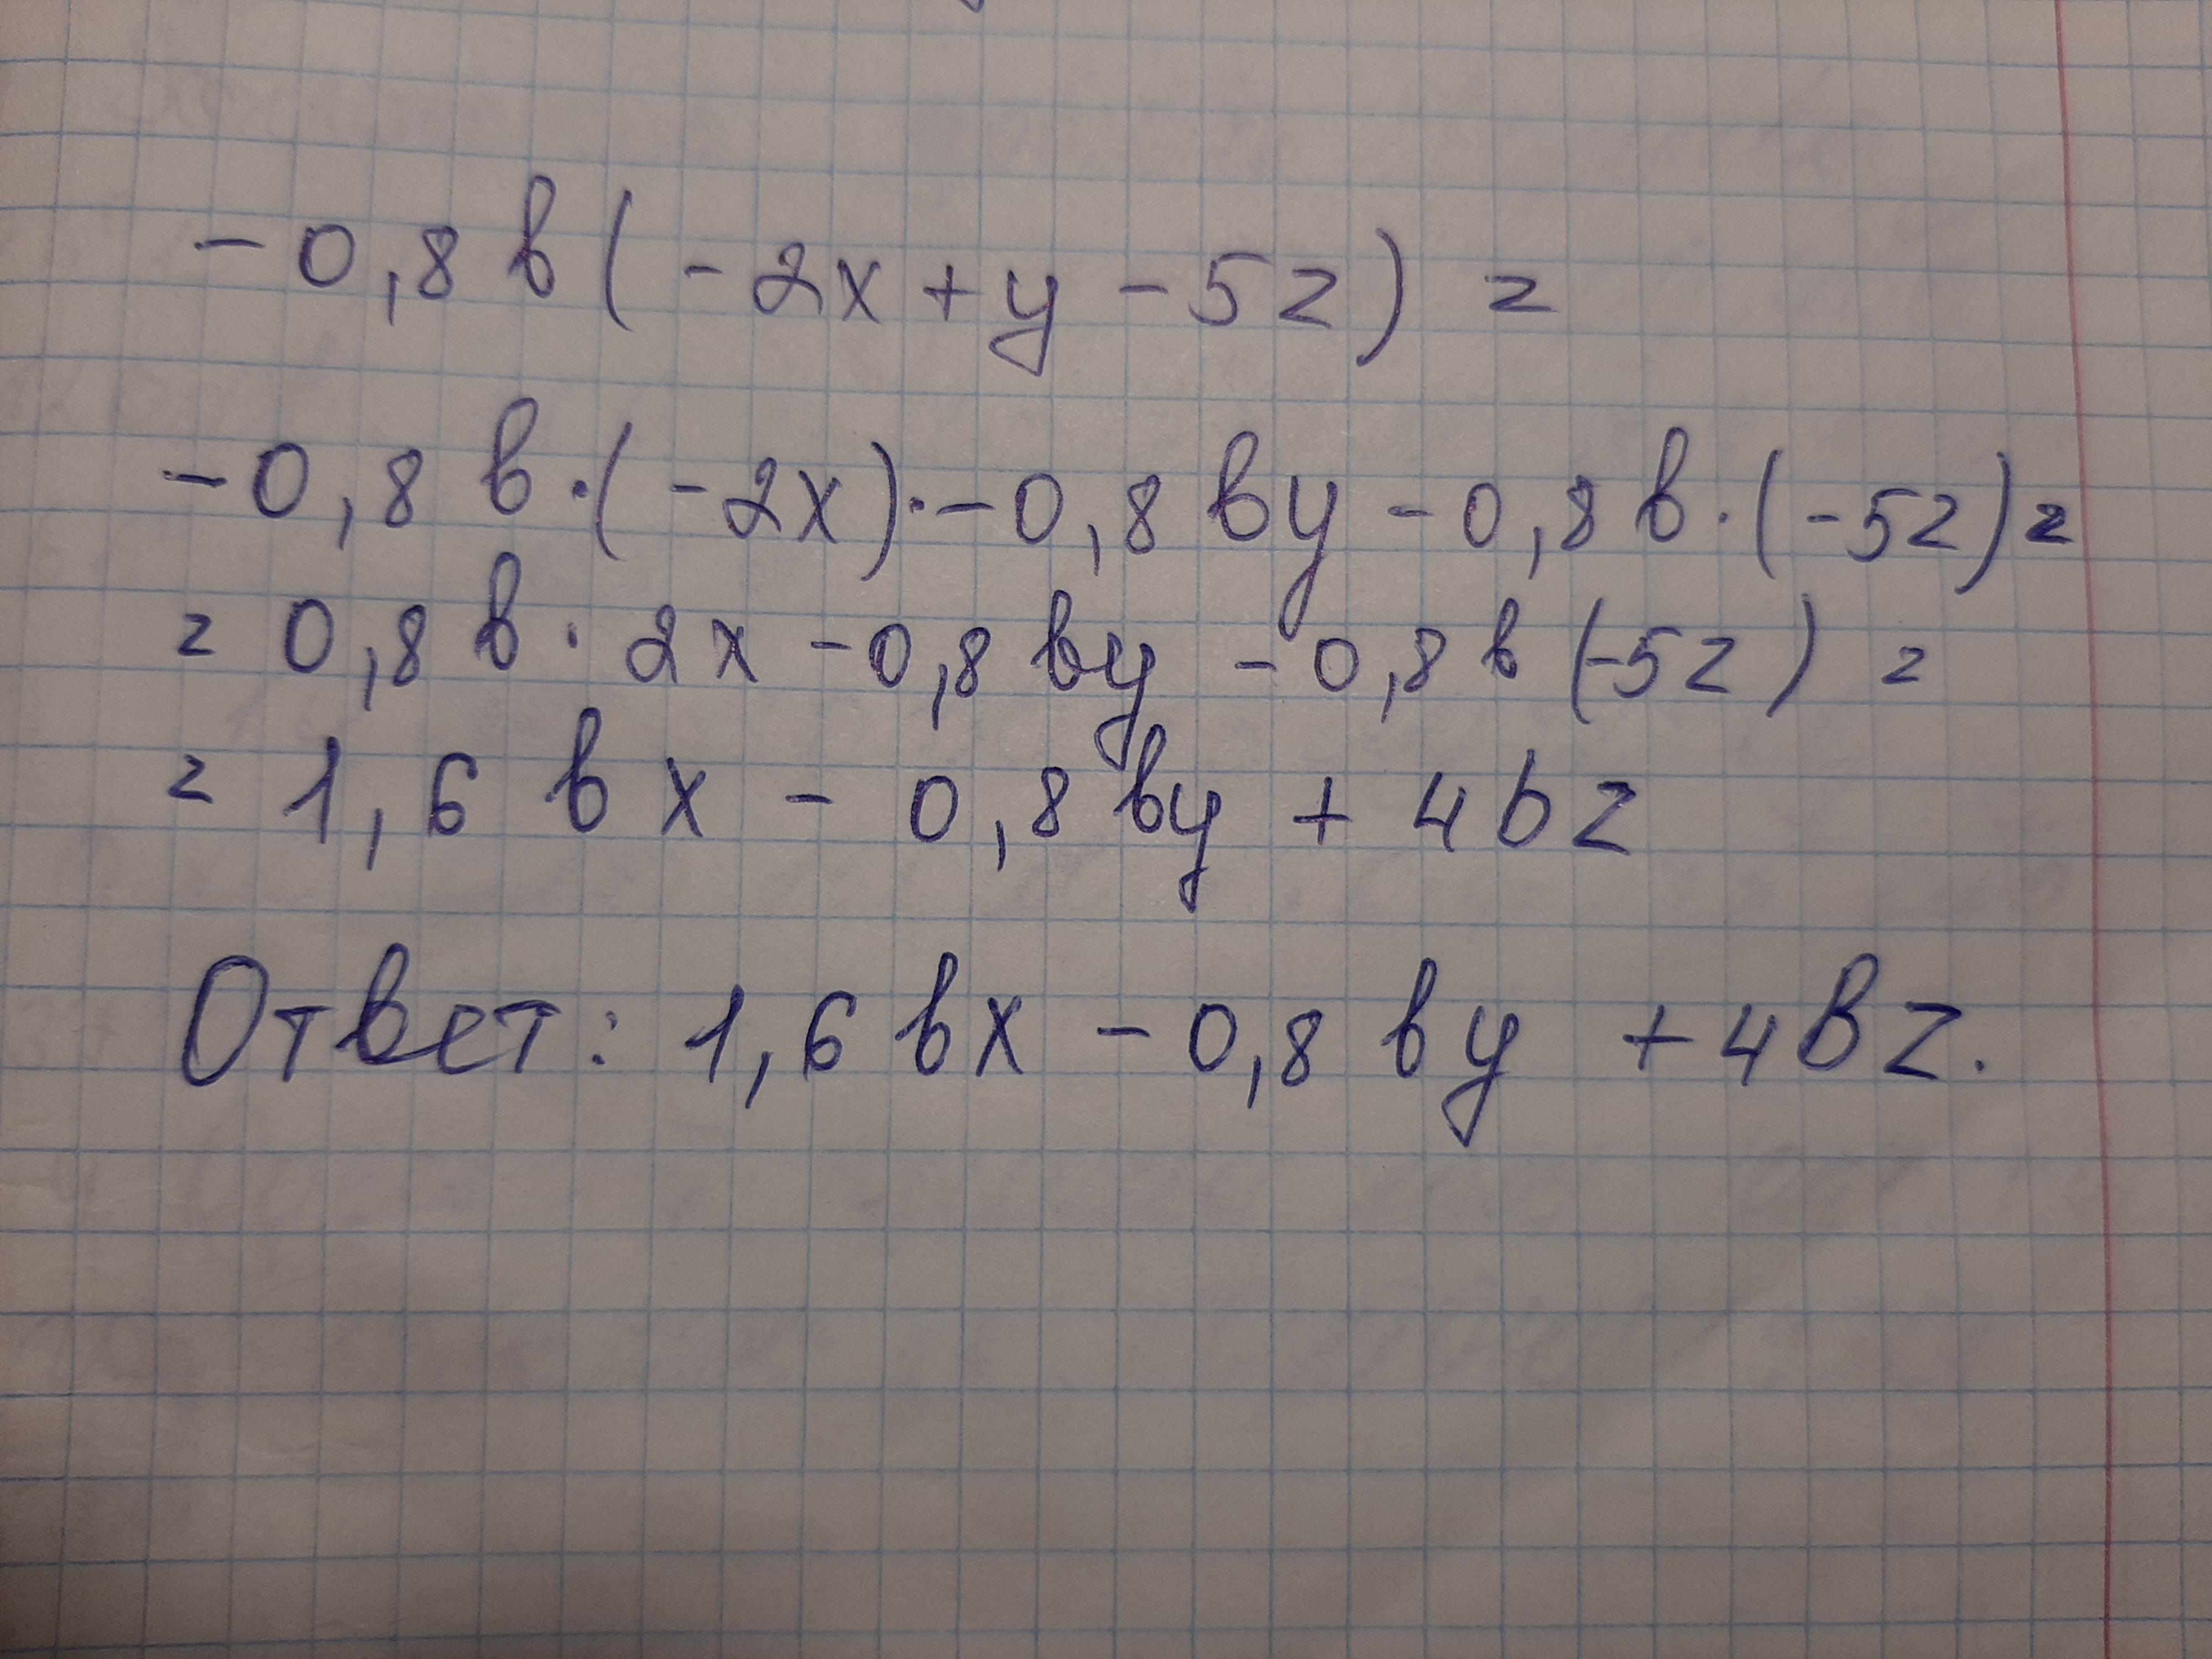 -0,8 в (-2x + y - 5z) =
-0,8 в · (-2x) · -0,8 вy - 0,8 в · (-5z) =
= 0,8 в · 2x - 0,8 вy - 0,8 в (-5z) =
= 1,6 в x - 0,8 вy + 4bz
Ответ: 1,6 вx - 0,8 вy + 4вz.